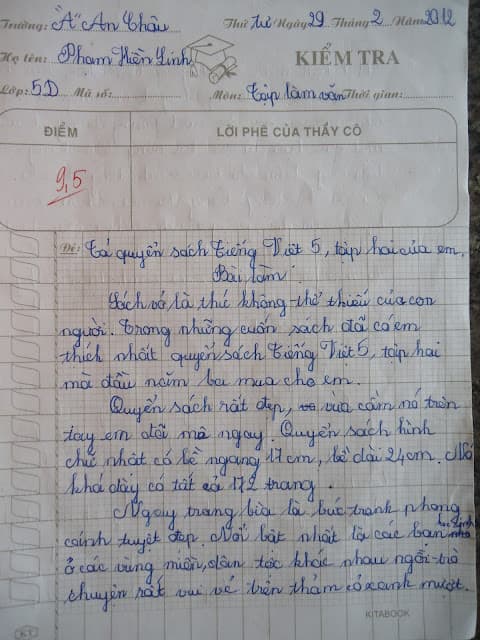 Trường: "A" An Châu Thứ tư Ngày 29 Tháng 2 Năm 2012
Họ tên: Phạm Hiền Linh KIỂM TRA
Lớp: 5D Mã số: Môn: Tập làm văn Thời gian:
ĐIỂM LỜI PHÊ CỦA THẦY CÔ
9,5
Đề: Tả quyển sách Tiếng Việt 5, tập hai của em.
Bài làm
Sách vở là thứ không thể thiếu của con
người. Trong những cuốn sách đã có em
thích nhất quyển sách Tiếng Việt 5, tập hai
mà đầu năm ba mua cho em.
Quyển sách rất đẹp, vừa cầm nó trên
tay em đã mê ngay. Quyển sách hình
chữ nhật có bề ngang 17cm, bề dài 24cm. Nó
khá dày có tất cả 172 trang.
Ngay trang bìa là bức tranh phong
cảnh tuyệt đẹp. Nổi bật nhất là các bạn học sinh
ở các vùng miền, dân tộc khác nhau ngồi trò
chuyện rất vui vẻ trên thảm cỏ xanh mượt.
KITABOOK